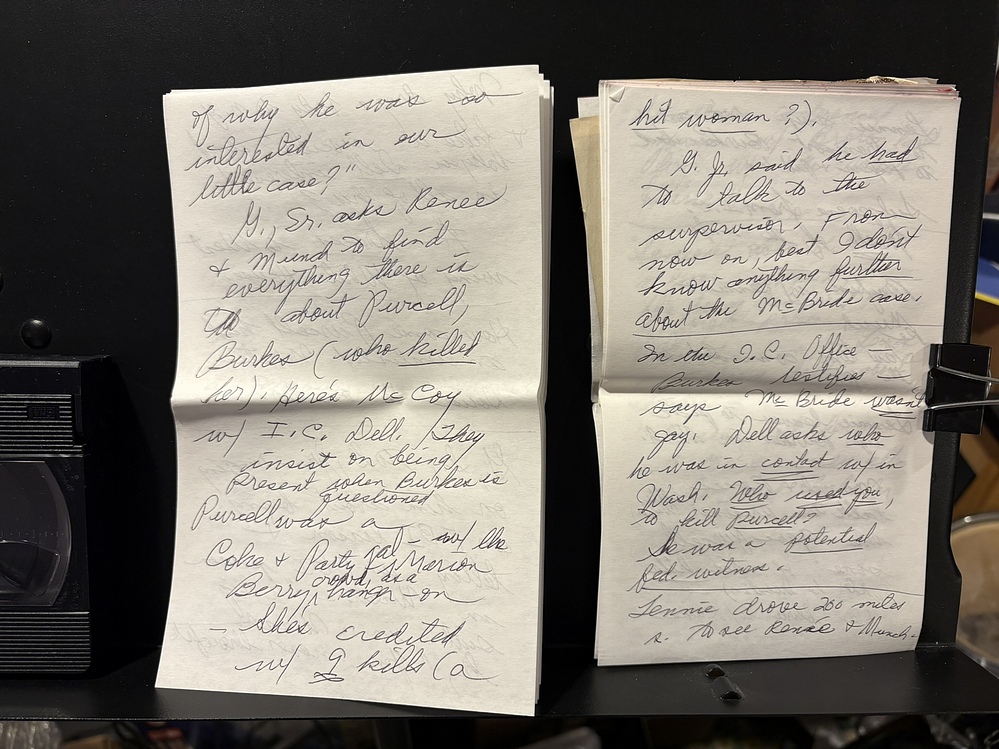 of why he was so
interested in our
little case?"
G., Sr. asks Renee
& Munch to find
everything there is
about Purcell,
Burkes (who killed
her). Here's McCoy
w/ I.C. Dell. They
insist on being
present when Burkes is
questioned
Purcell was a
Coke & Party gal – w/ the
Marion
Berry crowd, as a
hanger-on
– She's credited
w/ 9 kills (a
hit woman?).
G. Jr. said he had
to talk to the
surpervisor. From
now on, best I don't
know anything further
about the McBride case.
In the I.C. Office –
Burkes testifies –
says McBride wasn't
gay. Dell asks who
he was in contact w/ in
Wash. Who used you,
to kill Purcell?
She was a potential
fed. witness.
Tennie drove 200 miles
s. to see Renee & Munch.